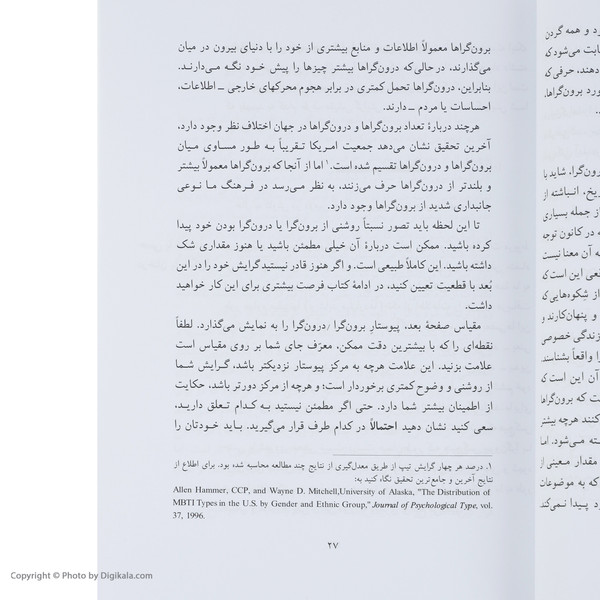 برون‌گراها معمولاً اطلاعات و منابع بیشتری از خود را با دنیای بیرون در میان
می‌گذارند، در حالی‌که درون‌گراها بیشتر چیزها را پیش خود نگه می‌دارند.
بنابراین، درون‌گراها تحمل کمتری در برابر هجوم محرکهای خارجی ــ اطلاعات،
احساسات یا مردم ــ دارند.
هرچند دربارهٔ تعداد برون‌گراها و درون‌گراها در جهان اختلاف نظر وجود دارد،
آخرین تحقیق نشان می‌دهد جمعیت امریکا تقریباً به طور مساوی میان
برون‌گراها و درون‌گراها تقسیم شده است.۱ اما از آنجا که برون‌گراها معمولاً بیشتر
و بلندتر از درون‌گراها حرف می‌زنند، به نظر می‌رسد در فرهنگ ما نوعی
جانبداری شدید از برون‌گراها وجود دارد.
تا این لحظه باید تصور نسبتاً روشنی از برون‌گرا یا درون‌گرا بودن خود پیدا
کرده باشید. ممکن است دربارهٔ آن خیلی مطمئن باشید یا هنوز مقداری شک
داشته باشید. این کاملاً طبیعی است. و اگر هنوز قادر نیستید گرایش خود را در این
بُعد با قطعیت تعیین کنید، در ادامهٔ کتاب فرصت بیشتری برای این کار خواهید
داشت.
مقیاس صفحهٔ بعد، پیوستارِ برون‌گرا /درون‌گرا را به نمایش می‌گذارد. لطفاً
نقطه‌ای را که با بیشترین دقت ممکن، معرّف جای شما بر روی مقیاس است
علامت بزنید. این علامت هرچه به مرکز پیوستار نزدیکتر باشد، گرایش شما
از روشنی و وضوح کمتری برخوردار است؛ و هرچه از مرکز دورتر باشد، حکایت
از اطمینان بیشتر شما دارد. حتی اگر مطمئن نیستید به کدام تعلق دارید،
سعی کنید نشان دهید احتمالاً در کدام طرف قرار می‌گیرید. باید خودتان را
۱. درصد هر چهار گرایش تیپ از طریق معدل‌گیری از نتایج چند مطالعه محاسبه شده بود. برای اطلاع از
نتایج آخرین و جامع‌ترین تحقیق نگاه کنید به:
Allen Hammer, CCP, and Wayne D. Mitchell,University of Alaska, "The Distribution of
MBTI Types in the U.S. by Gender and Ethnic Group," Journal of Psychological Type, vol.
37, 1996.
۲۷
د و همه گردن
ایت می‌شود که
دهند، حرفی که
ورد برون‌گراها،
رون‌گرا، شاید با
ریخ، انباشته از
از جمله بسیاری
ه در کانون توجه
ه آن معنا نیست
قعی این است که
از شکوه‌هایی که
و پنهان‌کارند و
زندگی خصوصی
را واقعاً بشناسند
آن این است که
ت که برون‌گراها
کنند هرچه بیشتر
سته می‌شود. اما
مقدار معینی از
که به موضوعات
د پیدا نمی‌کند
Copyright © Photo by Digikala.com